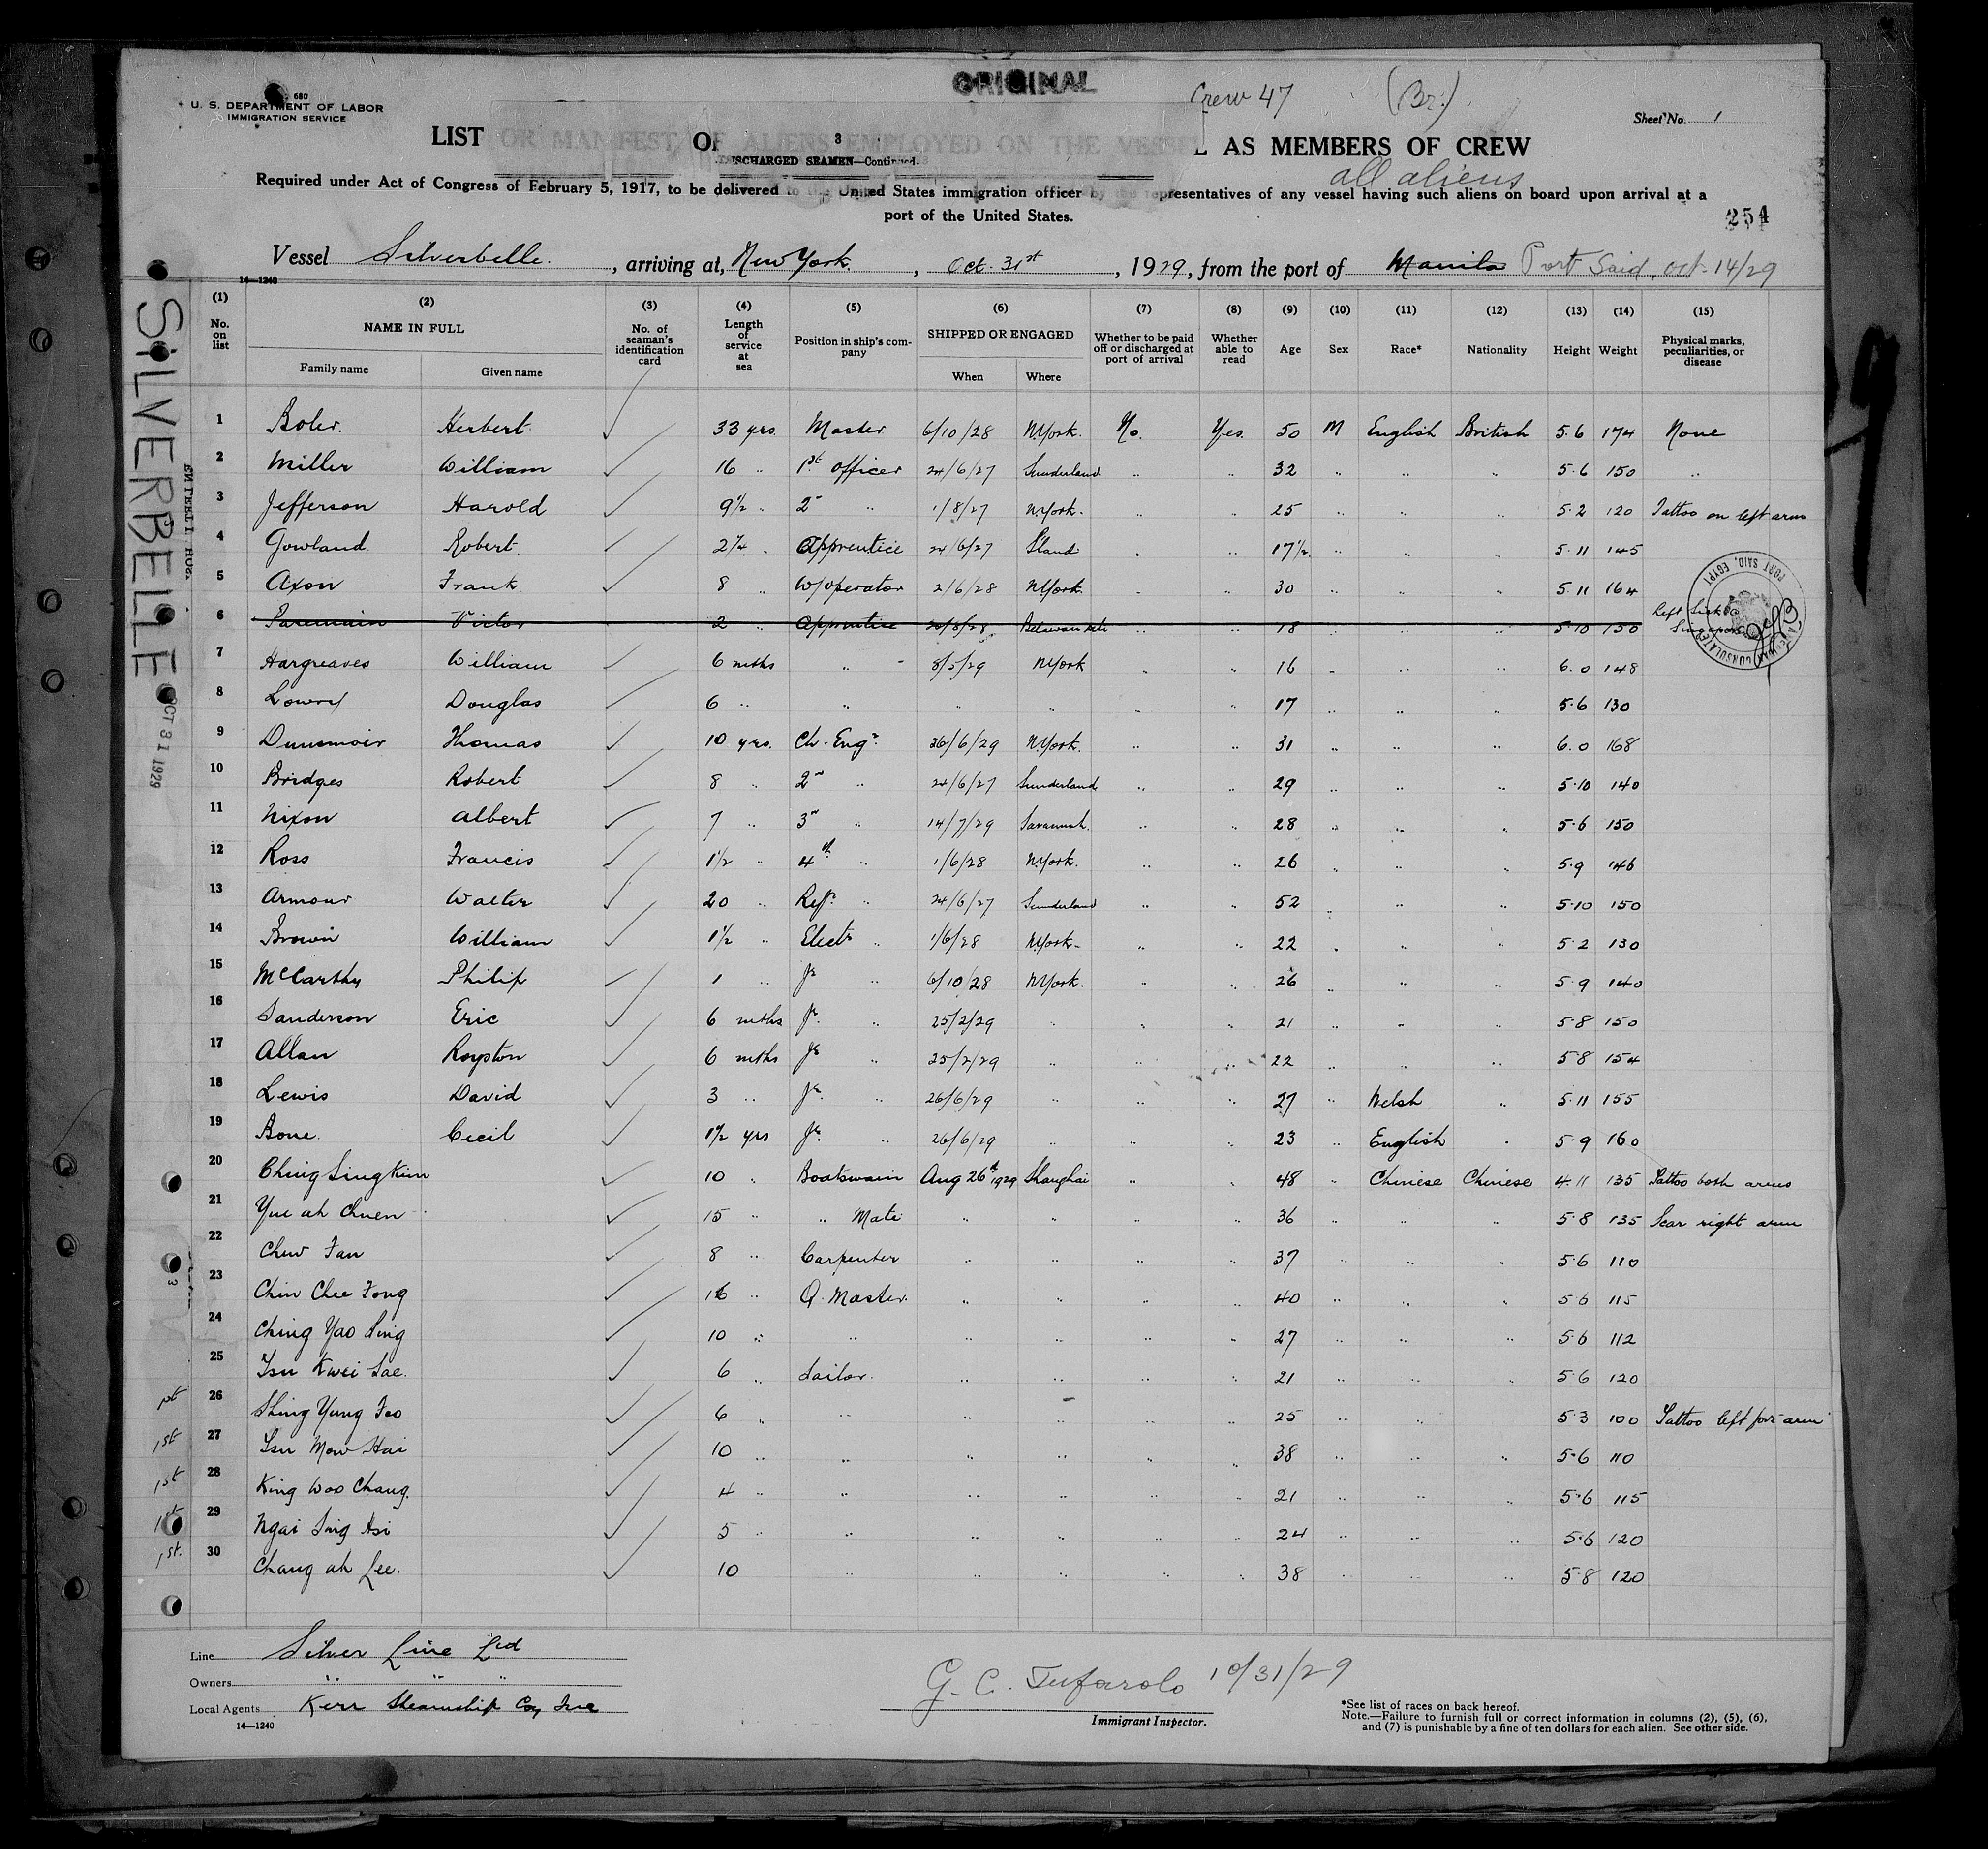 ORIGINAL
Crew 47 (Br.)
680
U. S. DEPARTMENT OF LABOR
IMMIGRATION SERVICE
Sheet No. 1
LIST OR MANIFEST OF ALIENS EMPLOYED ON THE VESSEL AS MEMBERS OF CREW
3
DISCHARGED SEAMEN—Continued.
all aliens
Required under Act of Congress of February 5, 1917, to be delivered to the United States immigration officer by the representatives of any vessel having such aliens on board upon arrival at a
port of the United States.
254
Vessel Silverbelle, arriving at, New York, Oct. 31st, 1929, from the port of Manila Port Said, Oct-14/29
14—1240
(1) (2) (3) (4) (5) (6) (7) (8) (9) (10) (11) (12) (13) (14) (15)
No. on list NAME IN FULL Family name Given name No. of seaman's identification card Length of service at sea Position in ship's company SHIPPED OR ENGAGED When Where Whether to be paid off or discharged at port of arrival Whether able to read Age Sex Race* Nationality Height Weight Physical marks, peculiarities, or disease
1 Boler. Herbert. ✓ 33 yrs. Master 6/10/28 N.York. No. Yes. 50 M English British 5.6 174 None
2 Miller William ✓ 16 " 1st officer 24/6/27 Sunderland " " 32 " " " 5.6 150 "
3 Jefferson Harold ✓ 9½ " 2" " 1/8/27 N.York. " " 25 " " " 5.2 120 Tattoo on left arm
4 Gowland Robert. ✓ 2¼ " Apprentice 24/6/27 S'land " " 17½ " " " 5.11 145
5 Axon Frank ✓ 8 " W/operator 2/6/28 N.York. " " 30 " " " 5.11 164
6 Victor 2 " Apprentice 20/8/28 " " 18 " " " 5.10 150 Left Singapore
7 Hargreaves William ✓ 6 mths " 8/5/29 N.York " " 16 " " " 6.0 148
8 Lowry Douglas ✓ 6 " " " " " " 17 " " " 5.6 130
9 Dunsmoir Thomas ✓ 10 yrs. Ch. Engr. 26/6/29 N.York. " " 31 " " " 6.0 168
10 Bridges Robert ✓ 8 " 2nd " 24/6/27 Sunderland " " 29 " " " 5.10 140
11 Nixon Albert ✓ 7 " 3rd " 14/7/29 Savannah. " " 28 " " " 5.6 150
12 Ross Francis ✓ 1½ " 4th " 1/6/28 N.York. " " 26 " " " 5.9 146
13 Armour Walter ✓ 20 " Refr. " 24/6/27 Sunderland " " 52 " " " 5.10 150
14 Brown William ✓ 1½ " Electr " 1/6/28 N.York- " " 22 " " " 5.2 130
15 McCarthy Philip ✓ 1 " Jr " 6/10/28 N.York. " " 26 " " " 5.9 140
16 Sanderson Eric ✓ 6 mths Jr. " 25/2/29 " " " 21 " " " 5.8 150
17 Allan Royston ✓ 6 mths Jr " 25/2/29 " " " 22 " " " 5.8 154
18 Lewis David ✓ 3 " Jr. " 26/6/29 " " " 27 " Welsh " 5.11 155
19 Bone. Cecil ✓ 1½ yrs Jr. " 26/6/29 " " " 23 " English " 5.9 160
20 Ching Sing Kum ✓ 10 " Boatswain Aug 26th 1929 Shanghai " " 48 " Chinese Chinese 4.11 135 Tattoo both arms
21 Yue ah Chuen ✓ 15 " " Mate " " " " 36 " " " 5.8 135 Scar right arm
22 Chew Fan ✓ 8 " Carpenter " " " " 37 " " " 5.6 110
23 Chin Chee Fong ✓ 16 " Q. Master. " " " " 40 " " " 5.6 115
24 Ching Yao Sing ✓ 10 " " " " " " 27 " " " 5.6 112
25 Tsu Kwei Sae. ✓ 6 " Sailor. " " " " 21 " " " 5.6 120
1st 26 Shing Yung Foo ✓ 6 " " " " " " 25 " " 5.3 100 Tattoo left fore-arm
1st 27 Tsu Mow Hai ✓ 10 " " " " " " 38 " " " 5.6 110
1st 28 King Woo Chang. ✓ 4 " " " " " " 21 " " " 5.6 115
1st 29 Ngai Sing Hsi ✓ 5 " " " " " " 24 " " " 5.6 120
1st. 30 Chang ah Lee. ✓ 10 " " " " " 38 " " " 5.8 120
SILVERBELLE
OCT 31 1929
PORT SAID, EGYPT
AMERICAN CONSULATE
Line Silver Line Ltd
Owners " " "
Local Agents Kerr Steamship Coy Inc
14—1240
G. C. Tufarolo 10/31/29
Immigrant Inspector.
*See list of races on back hereof.
Note.—Failure to furnish full or correct information in columns (2), (5), (6),
and (7) is punishable by a fine of ten dollars for each alien. See other side.